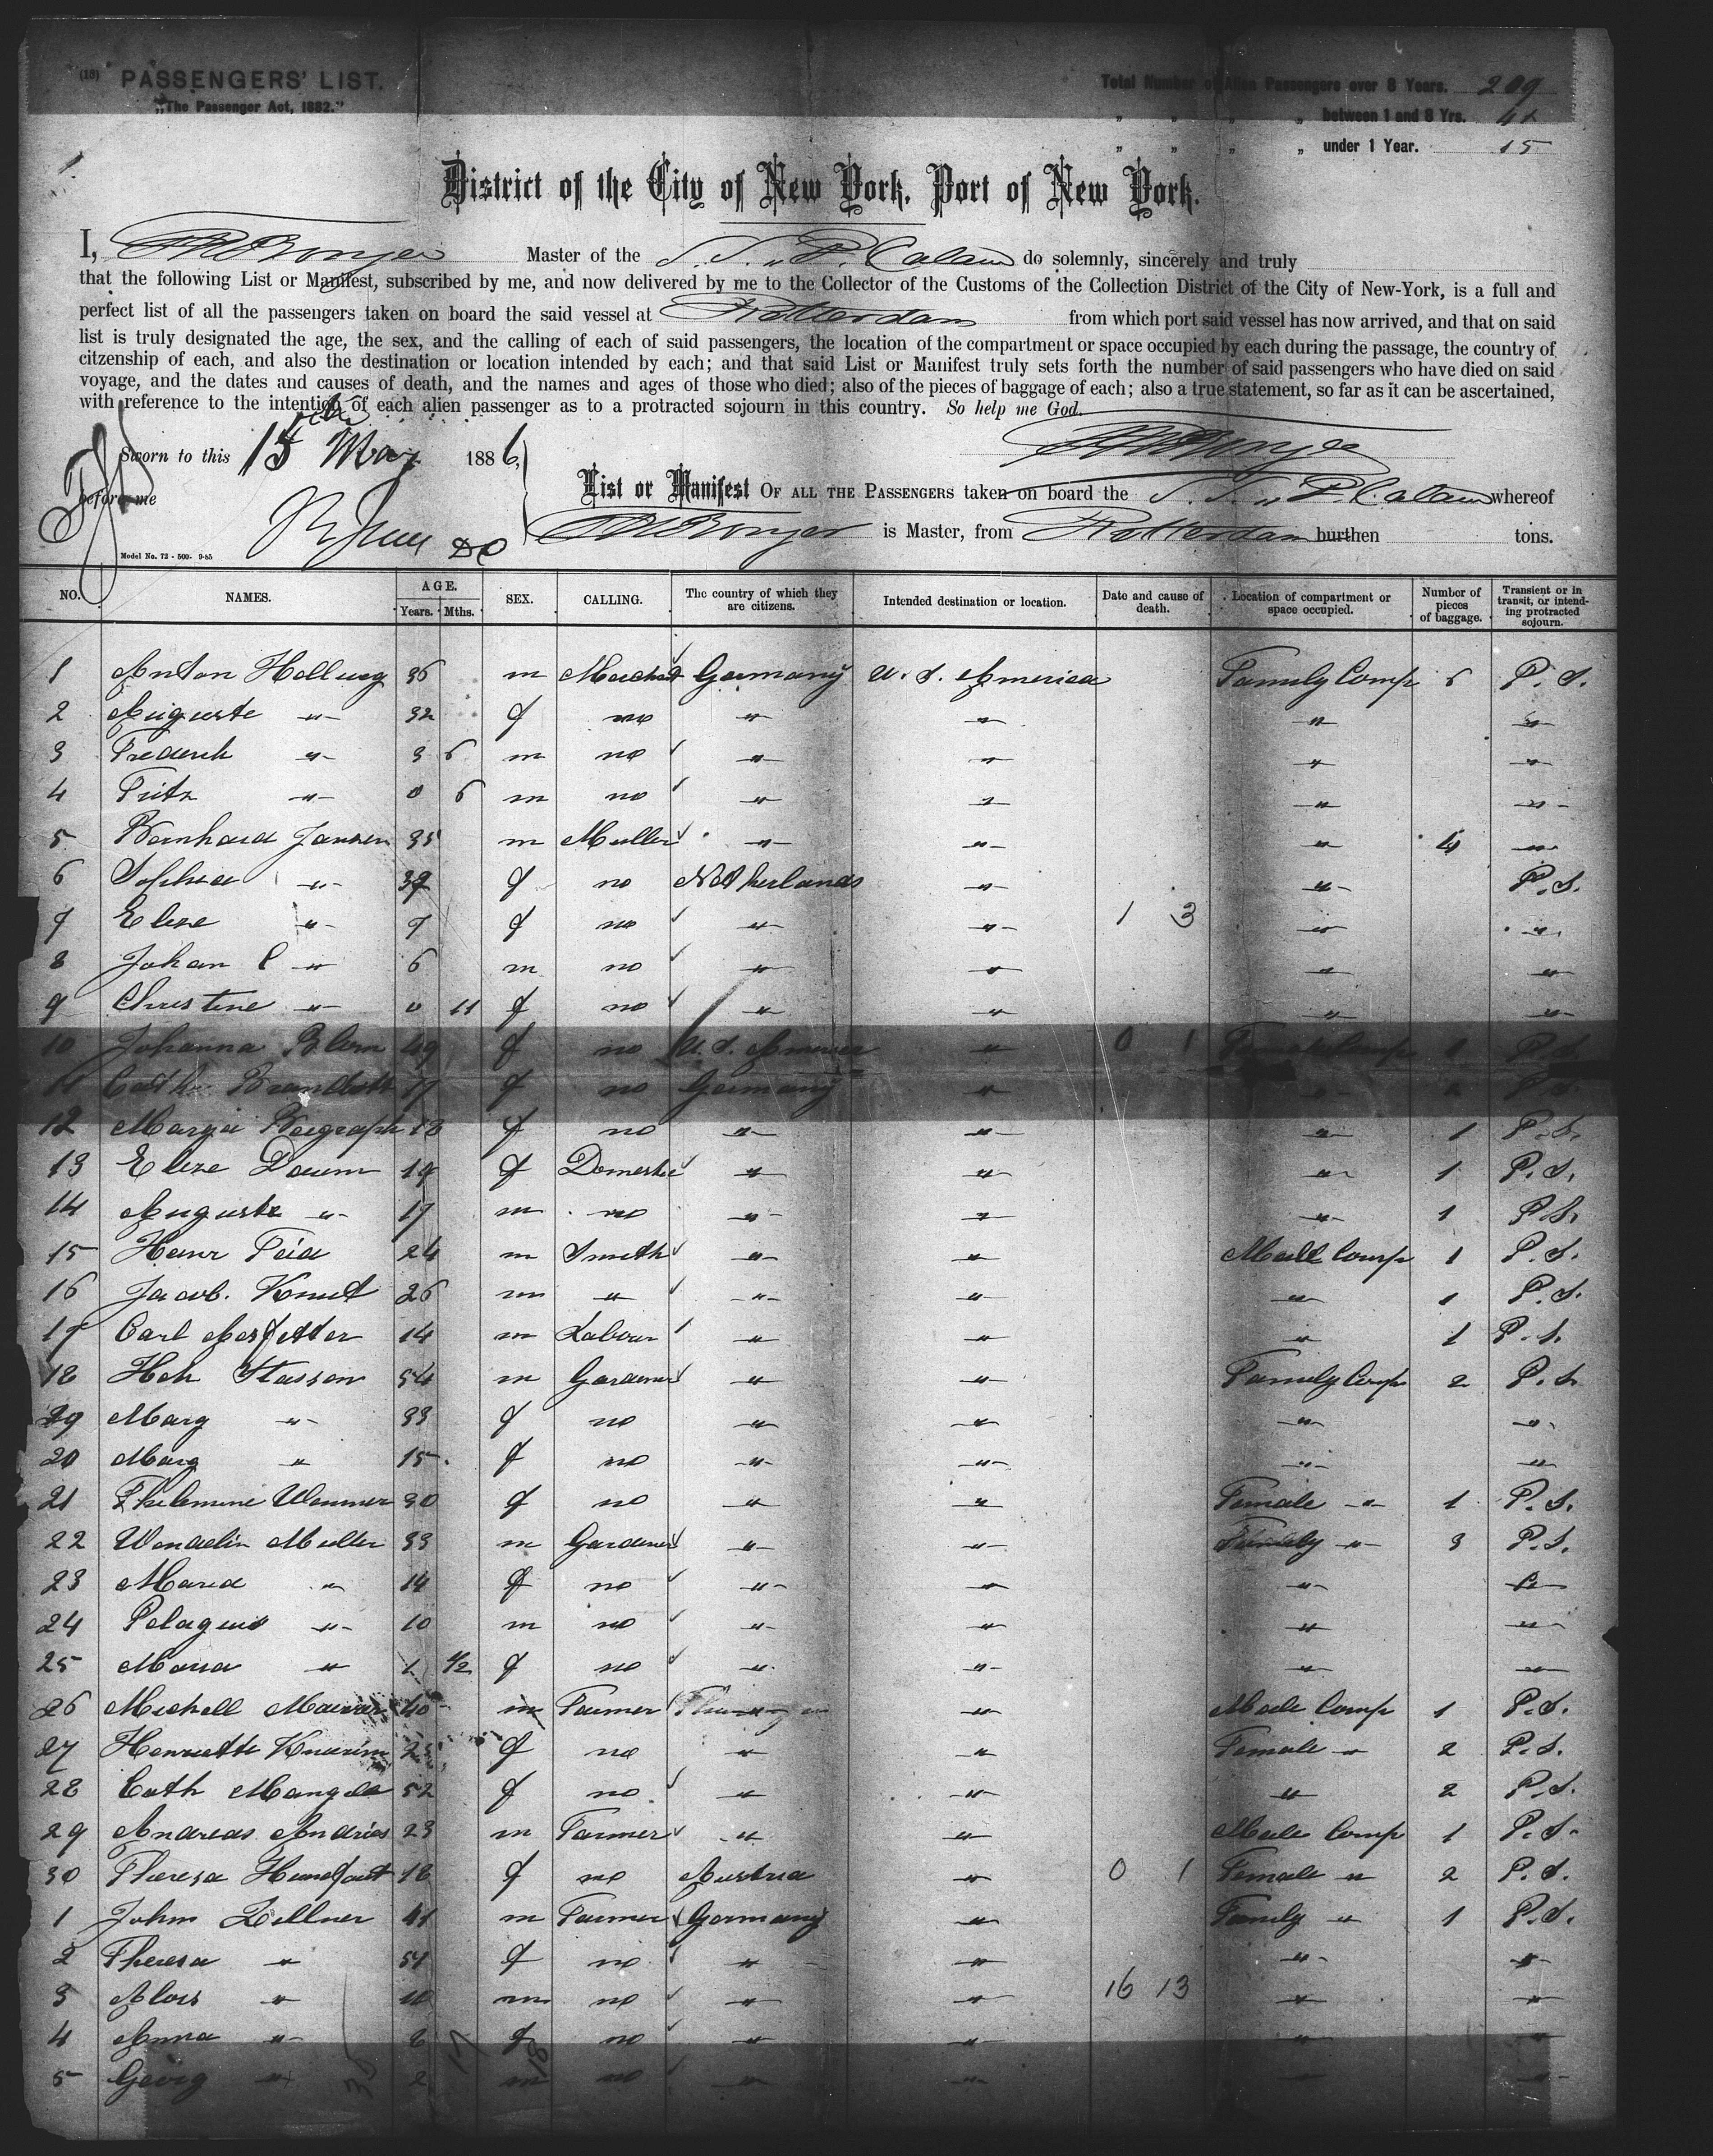 (19) PASSENGERS' LIST.
„The Passenger Act, 1882."
Total Number of Alien Passengers over 8 Years. 209
„ „ „ „ between 1 and 8 Yrs.
„ „ „ „ under 1 Year. 15
1
District of the City of New York, Port of New York.
I, Master of the S.S. „P. Caland do solemnly, sincerely and truly
that the following List or Manifest, subscribed by me, and now delivered by me to the Collector of the Customs of the Collection District of the City of New-York, is a full and
perfect list of all the passengers taken on board the said vessel at Rotterdam from which port said vessel has now arrived, and that on said
list is truly designated the age, the sex, and the calling of each of said passengers, the location of the compartment or space occupied by each during the passage, the country of
citzenship of each, and also the destination or location intended by each; and that said List or Manifest truly sets forth the number of said passengers who have died on said
voyage, and the dates and causes of death, and the names and ages of those who died; also of the pieces of baggage of each; also a true statement, so far as it can be ascertained,
with reference to the intention of each alien passenger as to a protracted sojourn in this country. So help me God.
Sworn to this 15 May 1886,
before me
List or Manifest OF ALL THE PASSENGERS taken on board the S.S. „P. Caland whereof
is Master, from Rotterdam burthen tons.
Model No. 72 - 500- 9-85
NO. NAMES. AGE. Years. Mths. SEX. CALLING. The country of which they are citizens. Intended destination or location. Date and cause of death. Location of compartment or space occupied. Number of pieces of baggage. Transient or in transit, or intending protracted sojourn.
1 Anton Hellweg 36 m Germany U.S. America Family Comp 6 P.S.
2 Auguste " 32 f no " " " "
3 Frederik " 3 6 m no " " " "
4 Fritz " 0 6 m no " " " "
5 Bernhard Jansen 35 m Muller " " " 4 "
6 Sophia " f no Netherlands " " P.S.
7 Elise " 7 f no " " 1 3 " "
8 Johan C " 6 m no " " " "
9 Christine " 0 11 f no " " " "
10 Johanna Blom 49 f no U.S. America " 0 1 1 P.S.
11 Cath 17 f no Germany " " P.S.
12 18 f no " " " 1 P.S.
13 Elise Daum 19 f Domestic " " " 1 P.S.
14 Auguste " 17 m no " " " 1 P.S.
15 Heinr 24 m Smith " " Male Comp 1 P.S.
16 Jacob 26 m " " " " 1 P.S.
17 Carl 14 m Labour " " " 1 P.S.
18 Hch Stassen 54 m Gardener " " Family Comp 2 P.S.
19 Marg " 33 f no " " " "
20 Marg " 15 f no " " " "
21 Philomine 30 f no " " Female " 1 P.S.
22 Wendelin Muller 33 m Gardener " " Family " 3 P.S.
23 Maria " 14 f no " " " "
24 Pelagius " 10 m no " " " "
25 Maria " 1 f no " " " "
26 Michell 40 m Farmer " Male Comp 1 P.S.
27 Henriette f no " " Female " 2 P.S.
28 Cath 52 f no " " " 2 P.S.
29 Andreas Andries 23 m Farmer " " Male Comp 1 P.S.
30 Theresa 18 f no Austria " 0 1 Female " 2 P.S.
1 John Zellner 41 m Farmer Germany " Family " 1 P.S.
2 Theresa " 51 f no " " " "
3 Alois " 10 m no " " 16 13 " "
4 Anna " f no " " " "
5 Georg " 2 m no " "
35 17 18